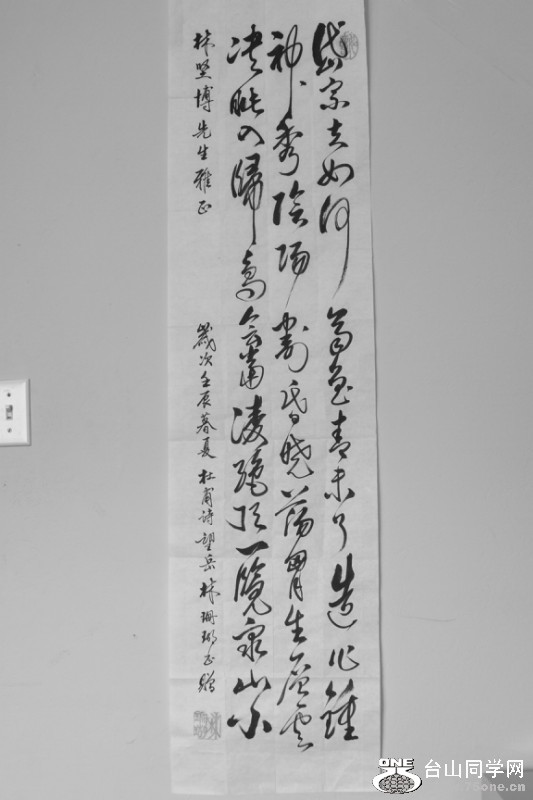 岱宗夫如何齊魯青未了造化鍾
神秀陰陽割昏曉蕩胸生層雲
決眥入歸鳥會當凌絕頂一覽衆山小
林坚博先生雅正
歲次壬辰暮夏杜甫詩望岳林珊瑚贈
ONE
台山同学网
75one.cn